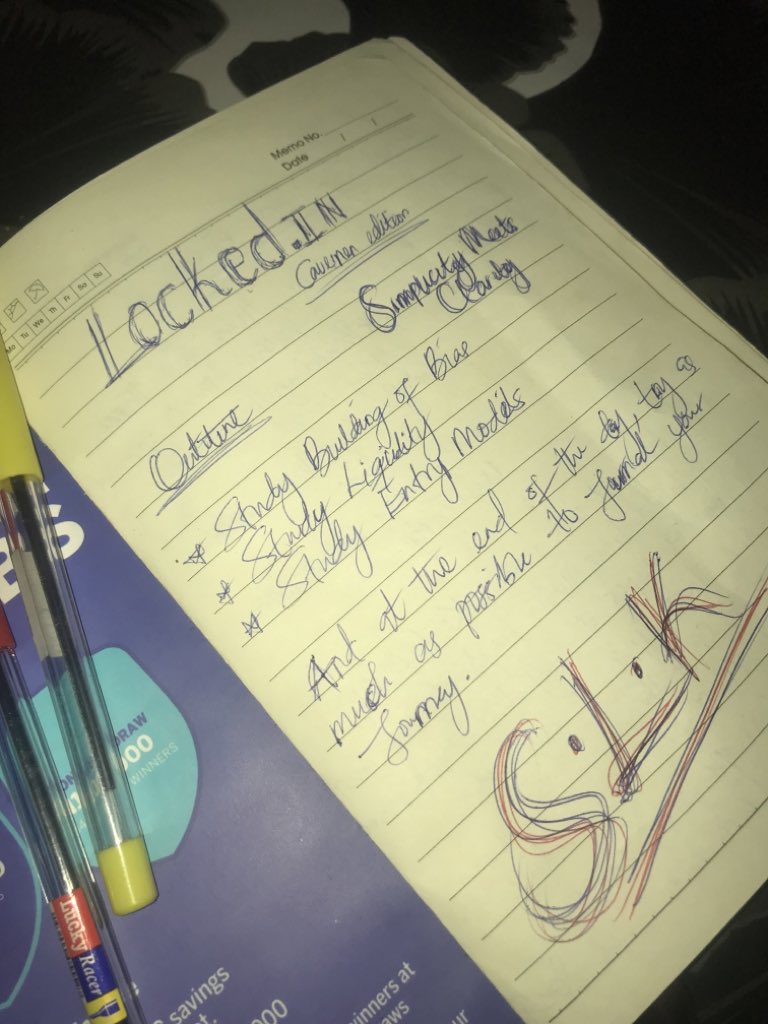 Memo No.
Date / /
Mo Tu We Th Fr Sa Su
Locked.IN
Cavemen edition
Simplicity Meets
Clarity
Outline
Study Building of Bias
Study Liquidity
Study Entry Models
And at the end of the day, try as
much as possible to Journal your
Journey.
S.L.K
ES
DRAW
000
WINNERS
Lucky Racer
savings
000
winners at
aws
ur